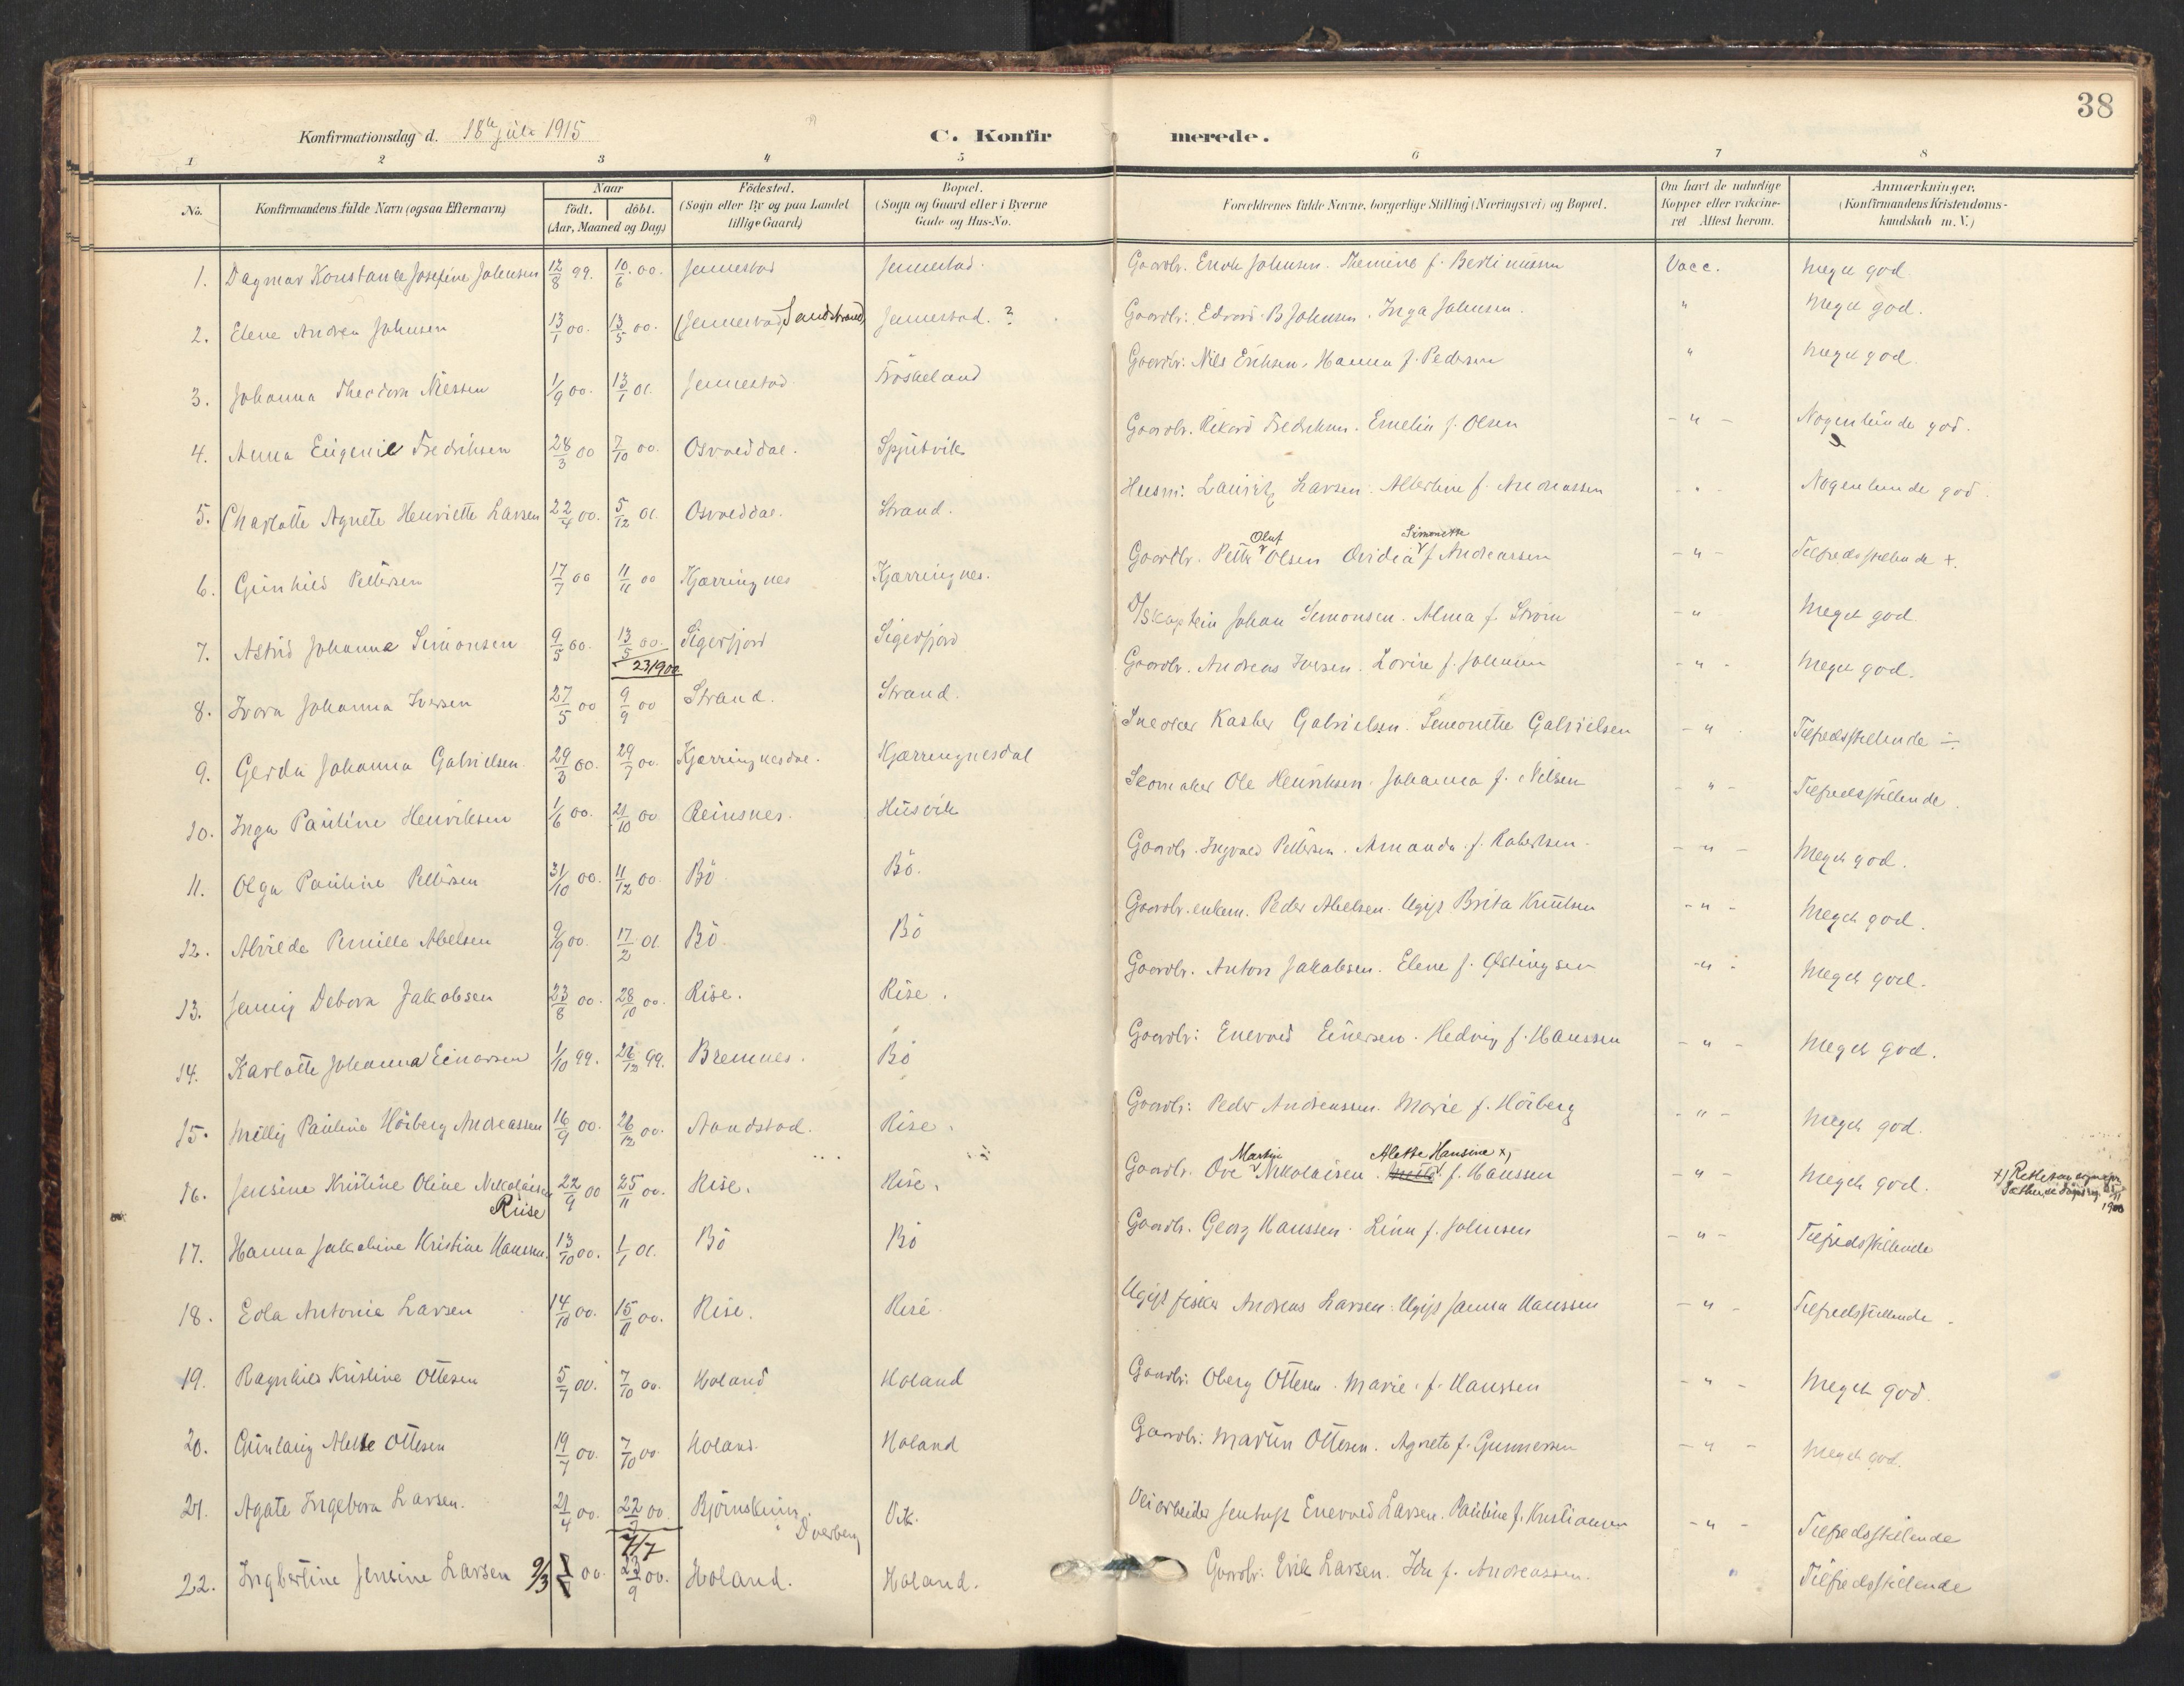 38
Konfirmationsdag d. 18de juli 1915
C. Konfir merede.
1 2 3 4 5 6 7 8
No.
Konfirmandens fulde Navn (ogsaa Efternavn)
Naar
födt. döbt.
(Aar, Maaned og Dag)
Födested.
(Sogn eller By og paa Landet
tillige Gaard)
Bopæl.
(Sogn og Gaard eller i Byerne
Gade og Hus-No.
Forældrenes fulde Navne, borgerlige Stilling (Næringsvei) og Bopæl.
Om havt de naturlige
Kopper eller vakcine-
ret Attest herom.
Anmærkninger.
(Konfirmandens Kristendoms-
kundskab m. V.)
1. Dagmar Konstance Josefine Johnsen 12/8 99. 10/6 00. Jennestad Jennestad. Gaardbr. Enok Johnsen. f. Vacc. Meget god
2. Elene Andrea Johnsen 13/1 00. 13/5 00. (Jennestad, Sandstrand) Jennestad. ? Gaardbr: Edvard B Johnsen. Inga Johnsen. " Meget god.
3. Johanna Theodora Nilssen 1/9 00. 13/1 01. Jennestad Fröskeland Gaardbr: Nils Eriksen. Hanna f. Pedersen " Meget god.
4. Anna Eugenie Fredriksen 28/3 00 7/10 00. Osvolddal. Spjutvik Gaardbr. Rikard Fredriksen. Emelie f. Olsen - " - Nogenlunde god.
5. Charlotte Agnete Henriette Larsen 22/4 00. 5/12 01. Osvolddal. Strand. Husm: Lauritz Larsen. Albertine f. Andreassen - " - Nogenlunde god.
Oluf Simonette
6. Gunhild Pettersen 17/7 00 11/11 00 Kjærringnes Kjærringnes. Gaardbr. Petter Olsen Ovidia f. Andreassen - " - Tilfredsstillende +.
7. Astrid Johanna Simonsen 9/5 00. 13/5 00. Sigerfjord Sigerfjord D/Skaptein Johan Simonsen. Alma f. Ström - " Meget god
23/900
8. Ivara Johanna Iversen 27/5 00 9/9 00 Strand. Strand. Gaardbr. Andreas Iversen. Lovise f. Johnsen - " - Meget god.
9. Gerda Johanna Gabrielsen 29/3 00. 29/7 00. Kjærringnesdal. Kjærringnesdal Snedker Kasber Gabrielsen. Simonette Gabrielsen - " - Tilfredsstillende ÷
10. Inga Pauline Henriksen 1/6 00. 21/10 00 Reinsnes. Husvik Skomaker Ole Henriksen. Johanna f. Nilsen - " - Tilfredsstillende.
11. Olga Pauline Pettersen 31/10 00. 11/12 00. Bö Bö. Gaardbr. Ingvald Pettersen. Amanda f. Robertsen. - " - Meget god.
12. Alvilde Pernille Abelsen 9/9 00. 17/2 01. Bö. Bö Gaardbr. enkem. Peder Abelsen. Ugift Brita Knutsen - " - Meget god.
13. Jenny Debora Jakobsen 23/8 00. 28/10 00. Rise. Rise. Gaardbr. Anton Jakobsen. Elene f. Østingsen - " - Meget god.
14. Karlotte Johanna Einarsen 1/10 99. 26/12 99. Bremnes. Bö Gaardbr: Enevold Einersen. Hedvig f. Hanssen - " - Meget god.
15. Milly Pauline Höiberg Andreassen 16/9 00. 26/12 00. Aandstad. Rise. Gaardbr: Peder Andreassen. Marie f. Höiberg - " - Meget god.
Martin Alette Hansine x)
16. Jensine Kristine Oline Nikolaisen 22/9 00 25/11 00. Rise. Rise. Gaardbr. Ove Nikolaisen. f. Hanssen - " - Meget god.
Riise
x) Rettet 25/11 1900
17. Hanna Jakobine Kristine Hanssen. 13/10 00. 1/1 01. Bö Bö Gaardbr. Georg Hanssen. Lina f. Johnsen - " - Tilfredsstillende
18. Eola Antonia Larsen 14/10 00. 15/11 00. Rise. Rise. Ugift fisker Andreas Larsen. Ugift Janna Hanssen - " - Tilfredsstillende.
19. Ragnhild Kristine Ottesen 5/7 00. 7/10 00. Holand Holand Gaardbr: Oberg Ottesen. Marie f. Hanssen - " - Meget god.
20. Gunlaug Alette Ottesen 19/7 00. 7/10 00 Holand. Holand Gaardbr: Martin Ottesen. Agnete f. Gunnersen - " - Meget god.
21. Agate Ingebora Larsen. 21/4 00. 22/7 00. Björnskin. Vik. Veiarbeider Enevold Larsen. Pauline f. Kristiansen - " - Tilfredsstillende
7/7 Dverberg
22. Ingbertine Jensine Larsen 9/3 00. 23/9 00. Holand. Holand. Gaardbr. Erik Larsen. Ida f. Andreassen. " Tilfredsstillende